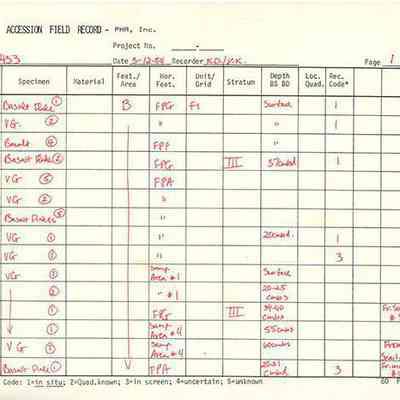 ACCESSION FIELD RECORD - PHR, Inc.
Project No. -
453 Date 5-12-84 Recorder Page 1
Specimen Material Feat./Area Hor. Feat. Unit/Grid Stratum Depth BS BD Loc. Quad. Rec. Code*
Basalt Flake ① B FPG F1 Surface 1
VG. ② " " 1
Basalt ④ FPF
Basalt Flake ⑥ FPG III 57cmbd 1
VG ③ FPA
VG ② "
Basalt Flakes ⑤ "
VG ① " 1
VG ① " 3
VG ① Samp. Area #1 Surface
① " #1 20-25 cmbs
① FPG III 39-40 cmbs
① Samp. Area #4 55cmbs
VG ② Samp. Area #4 60cmbs
Basalt Flake ① FPA cmbd 3
Code: 1=in situ; 2=Quad.known; 3=in screen; 4=uncertain; 5=unknown